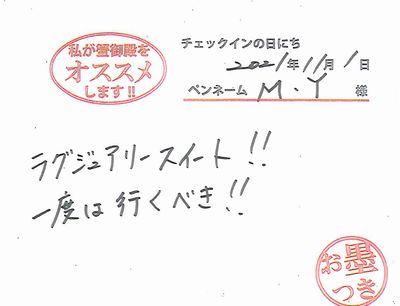 私が蟹御殿を
オススメ
します!!
チェックインの日にち
2021年11月1日
ペンネーム M・Y 様
ラグジュアリースイート!!
一度は行くべき!!
お墨
つき